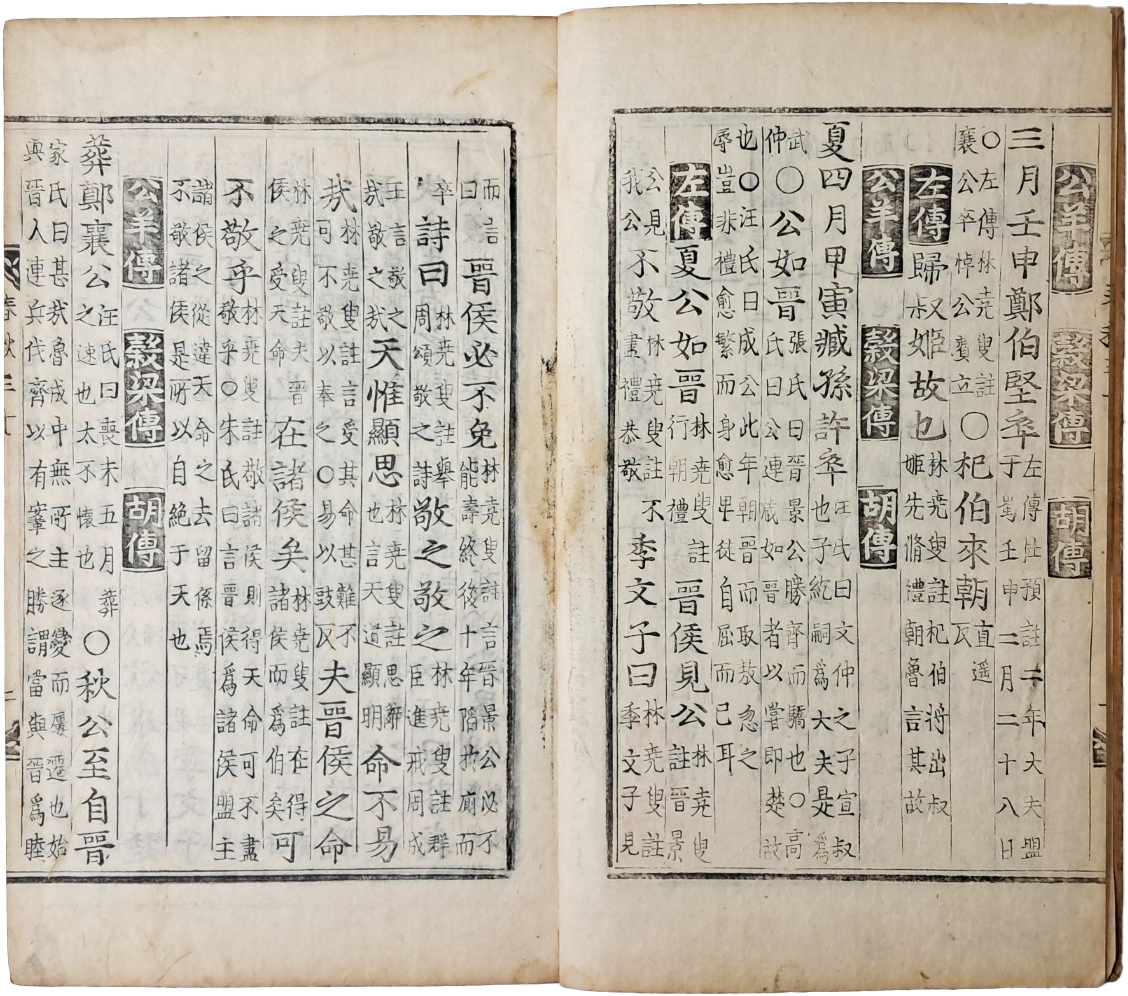 公羊傳 穀梁傳 胡傳
三月壬申鄭伯堅卒左傳杜預註二年大夫盟于蜀壬申二月二十八日
〇左傳林堯叟註襄公卒悼公費立〇杞伯來朝直遥反
左傳歸叔姬故也林堯叟註杞伯將出叔姬先脩禮朝魯言其故
公羊傳 穀梁傳 胡傳
夏四月甲寅臧孫許卒汪氏曰文仲之子宣叔也子紇嗣爲大夫是爲
武仲〇公如晉張氏曰晉景公勝齊而驕也〇高氏曰公連歲如晉者以嘗即楚故
也〇汪氏曰成公此年朝晉而取敖忽之辱豈非禮愈繁而身愈卑徒自屈而已耳
左傳夏公如晉林堯叟註行朝禮晉侯見公林堯叟註晉景
公見我公不敬林堯叟註不盡禮恭敬季文子曰林堯叟註季文子見
而言曰晉侯必不免林堯叟註言晉景公必不能壽終後十年陷於廁而
卒詩曰林堯叟註舉周頌敬之詩敬之敬之林堯叟註群臣進戒周成
王言敬之我敬之哉天惟顯思林堯叟註思辭也言天道顯明命不易
哉林堯叟註言受其命甚難不可不敬以奉之〇易以豉反夫晉侯之命
林堯叟註夫晉侯之受天命在諸侯矣林堯叟註在得諸侯而爲伯矣可
不敬乎林堯叟註敬諸侯則得天命可不盡敬乎〇朱氏曰言晉侯爲諸侯盟主
諸侯之從違天命之去留係焉不敬諸侯是所以自絕于天也
公羊傳 穀梁傳 胡傳
葬鄭襄公汪氏曰喪未五月葬之速也太不懷也〇秋公至自晉
家氏曰甚哉魯成中無所主逐變而屢遷也始與晉人連兵伐齊以有鞌之勝謂當與晉爲睦
春秋